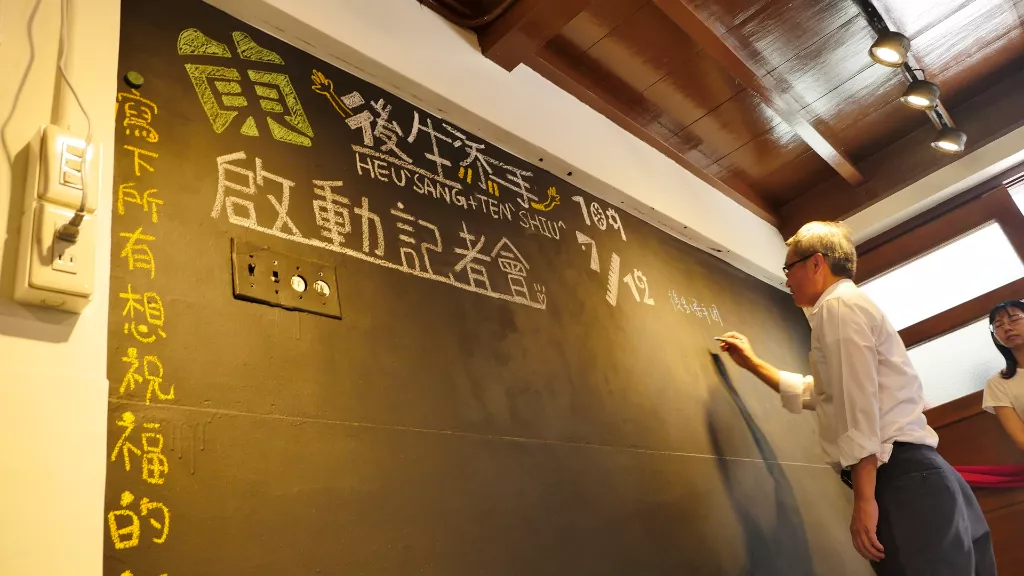 寫下所有想祝福的
後生添手
HEU SANG+TEN` SHIU^
啟動記者會
109
7/12